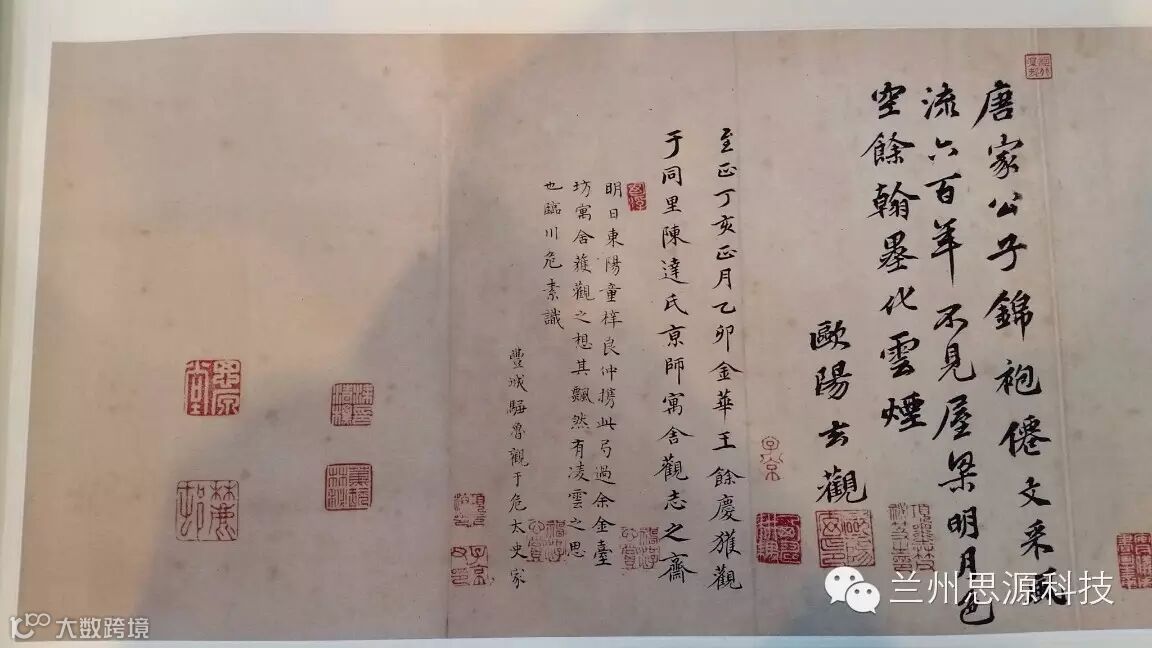 唐家公子錦袍僊文采風
流六百年不見屋梁明月色
空餘翰墨化雲煙
歐陽玄觀
至正丁亥正月乙卯金華王餘慶獲觀
于同里陳達氏京師寓舍觀志之齋
明日東陽童梓良仲攜此卷過余金臺
坊寓舍獲觀之想其飄然有凌雲之思
也臨川危素識
豐城騶魯觀于危太史家
子京
兰州思源科技
大数跨境